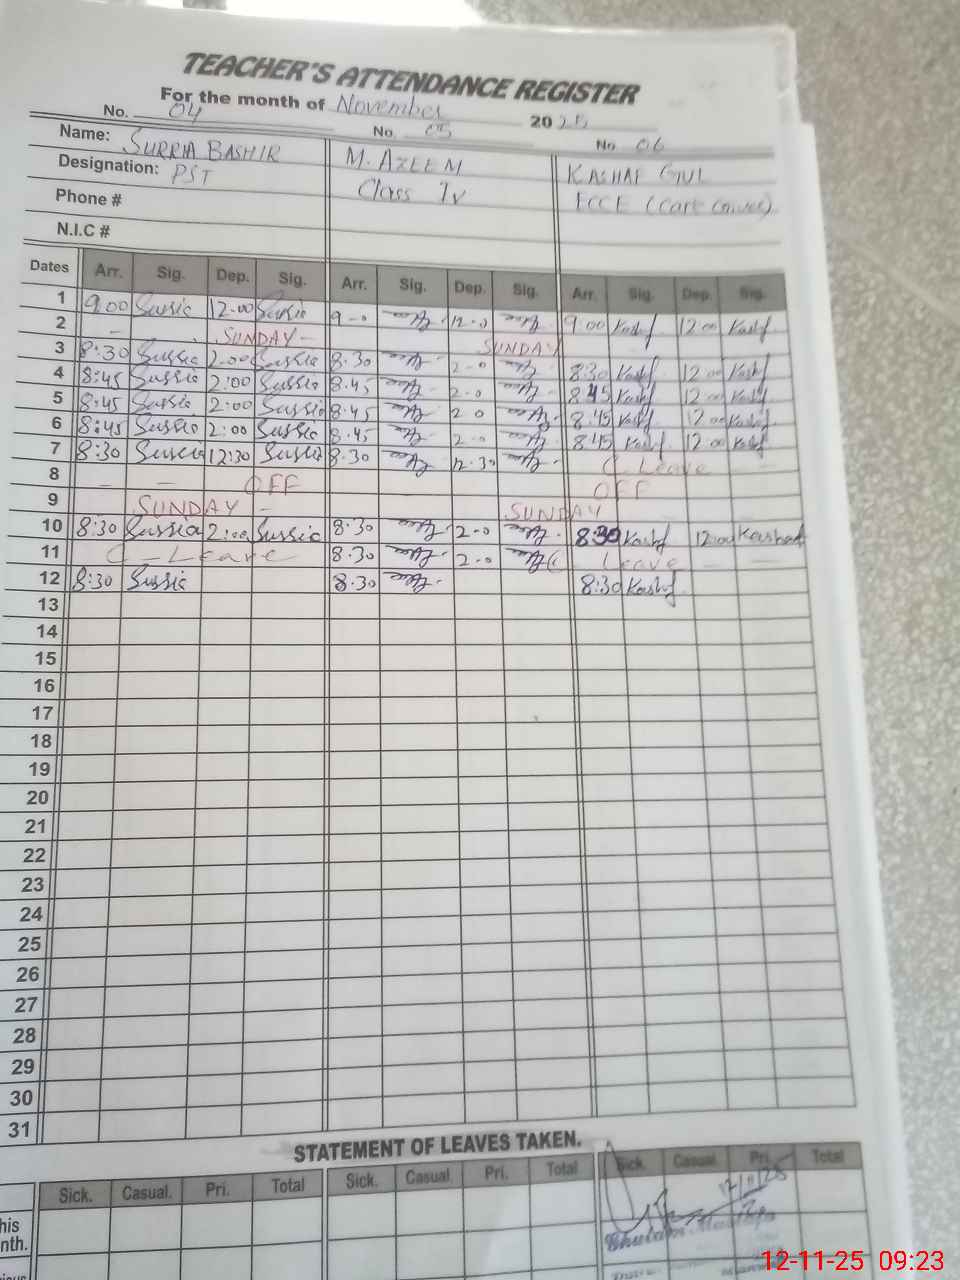 TEACHER'S ATTENDANCE REGISTER
For the month of November 2025
No. 04 No. 05 No 06
Name: SURRIA BASHIR M. AZEEM KASHAF GUL
Designation: PST Class IV ECCE (Care Giver)
Phone #
N.I.C #
Dates Arr. Sig. Dep. Sig. Arr. Sig. Dep. Sig. Arr. Sig. Dep. Sig.
1 9:00 Surria 12:00 Surria 9-0 12-0 9:00 Kashf 12:00 Kashf
2 - SUNDAY - SUNDAY
3 8:30 Surria 2:00 Surria 8.30 2-0 8:30 Kashf 12:00 Kashf
4 8:45 Surria 2:00 Surria 8.45 2-0 8:45 Kashf 12:00 Kashf
5 8:45 Surria 2:00 Surria 8.45 2-0 8.45 Kashf 12:00 Kashf
6 8:45 Surria 2:00 Surria 8.45 2-0 8:45 Kashf 12:00 Kashf
7 8:30 Surria 12:30 Surria 8.30 12.30 C Leave -
8 - - OFF OFF
9 SUNDAY - SUNDAY
10 8:30 Surria 2:00 Surria 8.30 2-0 8:30 Kashf 12:00 Kashaf
11 C - Leave 8.30 2-0 C Leave - -
12 8:30 Surria 8.30 8:30 Kashf
13
14
15
16
17
18
19
20
21
22
23
24
25
26
27
28
29
30
31
STATEMENT OF LEAVES TAKEN.
Sick. Casual. Pri. Total Sick. Casual. Pri. Total Sick. Casual. Pri. Total
his
nth.
12/11/25
12-11-25 09:23